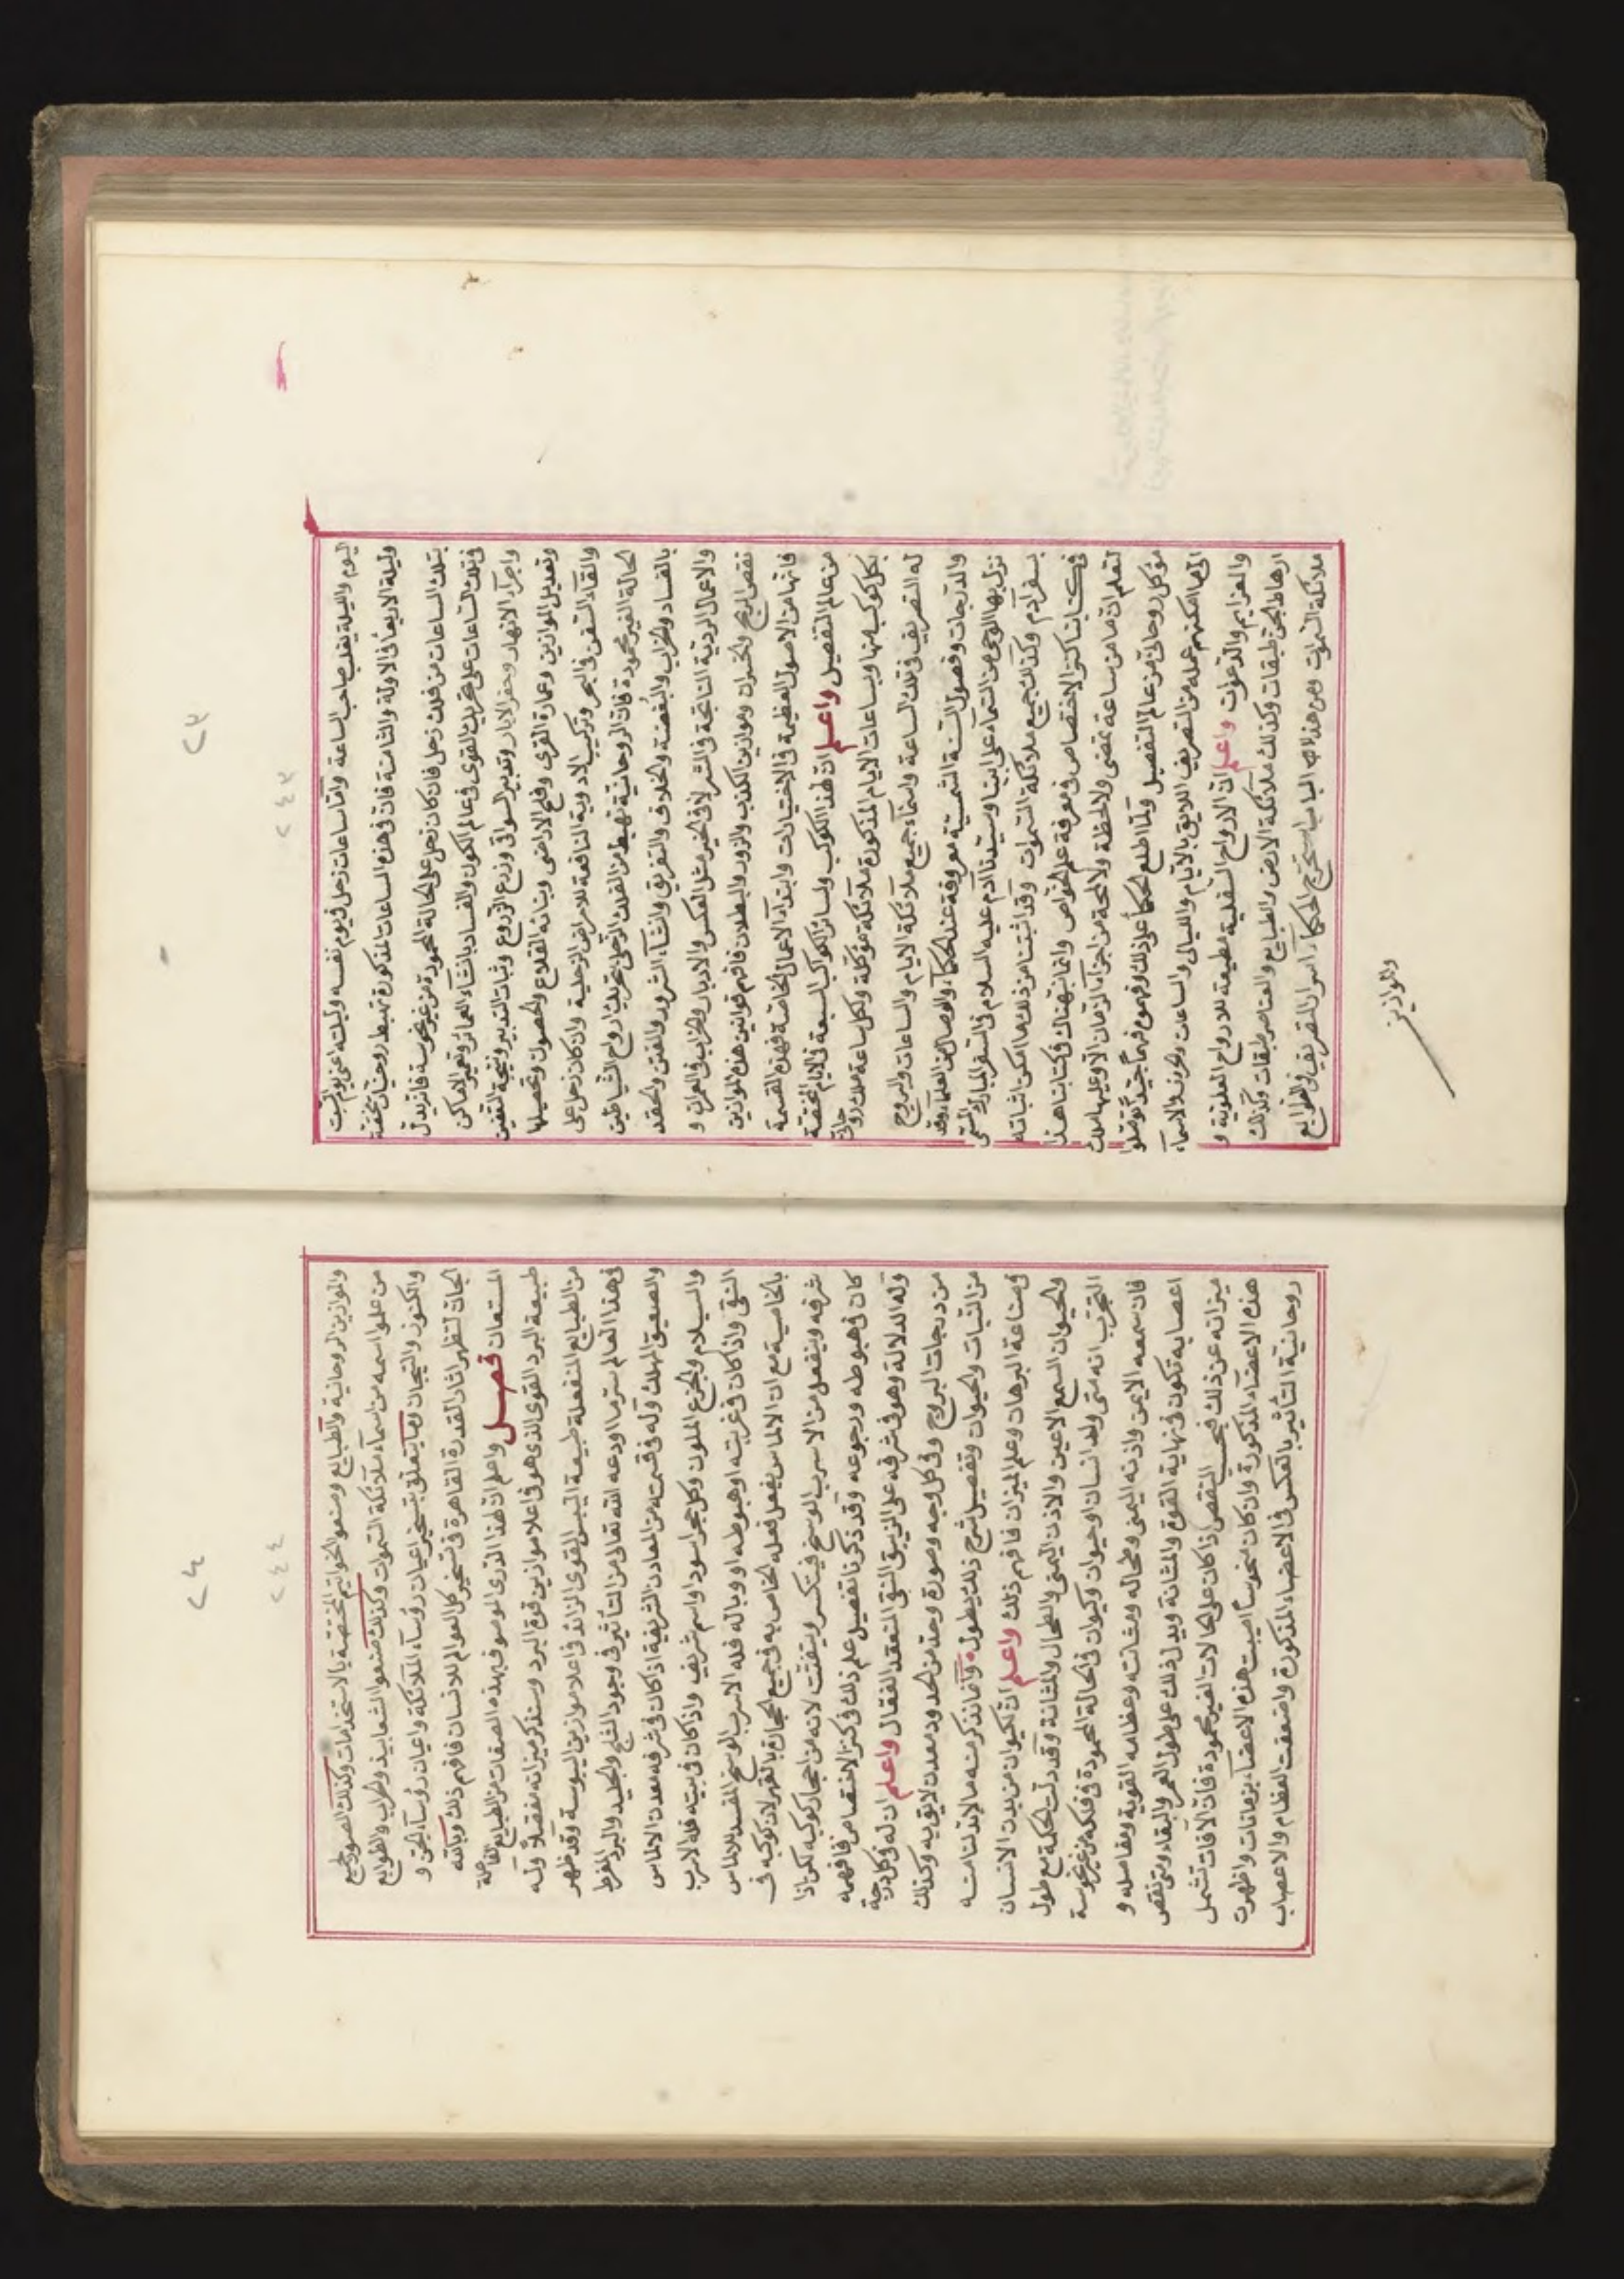 ٢٣
٢٤٣
ليوم والليلة يغلب صاحب الساعة وأما ساعات زحل في يوم نفسه وليلته اعني يوم السبت
وليلة الاربعا في الاولة والثامنة فان في هذه الساعات المذكورة تهبط روحانيات مختصة
بتلك الساعات من فلك زحل فان كان زحل على الحالة المحمودة من غير نحوسة فانزيدل
في تلك الساعات على تحريك القوى في عالم الكون والفساد بانشاء العماير وتعمير الاماكن
واجراء الانهار وحفر الابار وتدبير السواقى وزرع الزروع وثبات التدبير ونتيجة التقنين
وتعديل الموازين وعمارة القرى وفلح الاراضى وبنيانه القلاع والحصون وتحصيلها
والقاء السفن في البحر وتركيب الادوية النافعة للامراض الزحلية وان كان زحل على
الحالة الغير محمودة فان الروحانية تهبط من الفلك الزحلى بتحريك ارواح الشياطين
بالفساد والخراب والبغضة والخلاف والتفريق وانشاء الشرور والفتن والحقد
والاعمال الردية الناتجة في الشر لا في الخير مثل العكس والادبار والخراب في العمران و
نقص الربح والخسران وموازين الكذب والزور والبطلان فافهم قوانين هذه الموازين
فانها من الاصول العظيمة في الاختيارات وابتداء الاعمال الخاصة فهذه القسمة
من عالم التفصيل واعلم ان لهذا الكوكب ولسائر الكواكب السبعة في الايام المختصة
بكل كوكب منها وبساعات الايام المذكورة ملائكة موكلة ولكل ساعة ملك روحانى
له التصريف في تلك الساعة واسماء جميع ملائكة الايام والساعات والبروج
والدرجات وفصول السنة الشمسية معروفة عند الحكماء والوصال من العلماء وقد
نزل بها الوحى من السماء على ابينا وسيدنا آدم عليه السلام في السفر المبارك المسمى
بسفر آدم وكذلك جميع ملائكة السموات وقد اثبتنا من ذلك ما امكن اثباته
في كتابنا كنز الاختصاص في معرفة علم الخواص وانما نبهناك في كتابنا هذا
لتعلم ان ما من ساعة تمضى ولا لحظة ولا لمحة من اجزاء الزمان الا وعليها ملك
موكل روحانى من عالم التفصيل ولما اطلع الحكماء على ذلك وفهموه فهما جيدا توصلوا
الى ما امكنهم عمله من التصريف اللايق بالايام والليالى والساعات والحروف والاسماء
والعزايم والدعوات واعلم ان الارواح السفلية مطيعة للارواح العلوية و
ارهاط الجن طبقات وكذلك ملائكة الارض والطبايع والعناصر طبقات وكذلك
ملائكة السموات ومن هذا استخرج الحكماء اسرار التصريف في الطوالع
والموازين
٢٤
٢٤٤
والموازين الروحانية والطبايع وصنعوا الخواتم المختصة بالاستخدامات وكذلك الصور لجميع
من علوا اسمه من اسماء ملائكة السموات وكذلك صنعوا الشعابيذ والحراب والطوالع
والكنوز والتيجان وما يتعلق بتسخير اعيان رؤساء الملائكة واعيان رؤساء الجن و
الجان لتظهر اثار القدرة القاهرة في تسخير كل العوالم للانسان فافهم ذلك وبالله
المستعان فصل واعلم ان لهذا الدرى الموصوف بهذه الصفات من الطبايع الفاعلة
طبيعة البرد القوى الذى هو في اعلا موازين قوة البرد وسنذكر ميزانه مفصلا وله
من الطبايع المنفعلة طبيعة اليبس القوى الزائد في اعلا موازين اليبوسة وقد ظهر
في هذا العالم سر ما اودعه الله تعالى من التأثير في وجود الثلج والجليد والبرد المفرط
والصعيق المهلك وله في قسمته من المعادن الشريفة اذا كان في شرفه معدن الالماس
والسيلام والجزع الملون وكل حجر اسود واسم شريف واذا كان في بيته فله الاسرب
النقى واذا كان في غربته او هبوطه او وباله فله الاسرب الوسخ المفسد للالماس
بالخاصية مع ان الالماس يفعل فعله الخاص به في جميع الحجارة بالقهر لان كوكبه في
شرفه وينفعل من الاسرب الوسخ فيتكسر ويتفتت لانه من احجار كوكبه لكن اذا
كان في هبوطه ورجوعه وقد ذكرنا تفصيل علم ذلك في كنز الاختصاص فافهمه
وله الدلالة وهو في شرفه على الزيبق النقى المنعقد الفعال واعلم ان له في كل درجة
من درجات البروج وفى كل وجه وصورة وحد من الحدود معدن لايق به وكذلك
من النبات والحيوان وتفصيل شرح ذلك يطول وانما نذكر منه ما لا بد لنا منه
في صناعة البرهان وعلم الميزان فافهم ذلك واعلم ان لكيوان من بدن الانسان
والحيوان السمع الايمن والاذن اليمنى والطحال والمثانة وقد دلت الحكمة مع طول
التجرب انه متى ولد انسان او حيوان وكيوان في الحالة المحمودة في فلكه من غير نحوسة
فان سمعه الايمن واذنه اليمنى وطحاله ومثانته وعظامه القوية ومفاصله و
اعصابه تكون في نهاية القوة والمثانة ويدل ذلك على طول العمر والبقاء ومتى نقص
ميزانه عن ذلك فبحسب النقص اذا كان على الحالات الغير محمودة فان الآفات تشمل
هذه الاعضاء المذكورة وان كان منحوسا اصيبت هذه الاعضاء بزمانات واظهرت
روحانية التأثير بالعكس في الاعضاء المذكورة واضعفت العظام والاعصاب